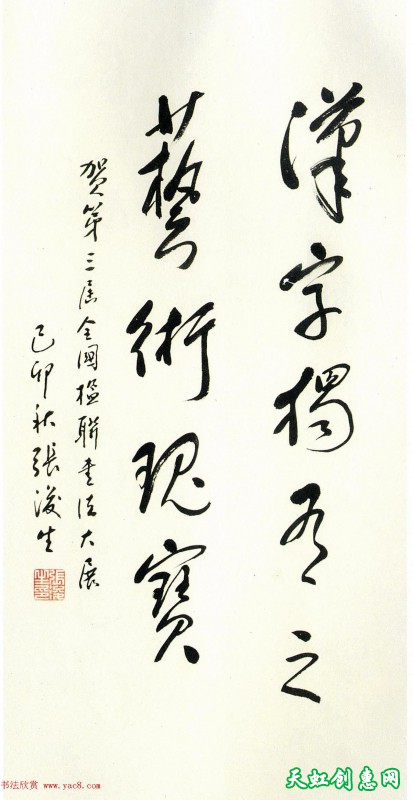 漢字獨有之
藝術瑰寶
賀第三届全國楹聯書法大展
己卯秋張浚生
張浚生印
书法欣赏 www.yac8.com
天虹创惠网